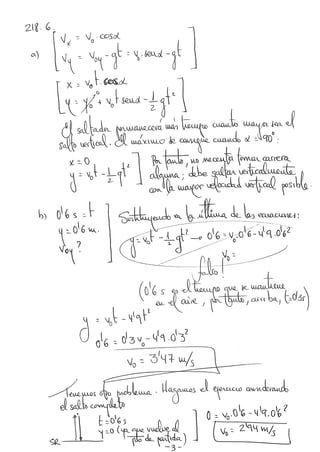 218.6.
a) [ Vx = V₀·cosα
Vy = V₀y - gt = V₀·senα - gt ]
[ x = V₀t·cosα
y = y₀ + V₀t senα - 1/2 gt² ]
El saltador permanecerá más tiempo cuanto mayor sea el
salto vertical. El máximo se consigue cuando α = 90º:
x = 0
y = V₀t - 1/2 gt² ] Por tanto, no necesita tomar carrera
alguna; debe saltar verticalmente
con la mayor velocidad vertical posible.
b) 0'6 s = t
y = 0'6 m.
V₀y? ] Sustituyendo en la última de las ecuaciones:
y = V₀t - 1/2 gt² → 0'6 = V₀·0'6 - 4'9·0'6²
V₀ =
falso!
(0'6 s es el tiempo que se mantiene
en el aire, por tanto, arriba, t=0'3s)
y = V₀t - 4'9t²
0'6 = 0'3V₀ - 4'9·0'3²
V₀ = 3'47 m/s
Tenemos otro problema. Hagamos el ejercicio considerando
el salto completo
t = 0'6 s
y = 0 (ya que vuelve al
pto de partida) ] 0 = V₀·0'6 - 4'9·0'6²
V₀ = 2'94 m/s
SR
-3-